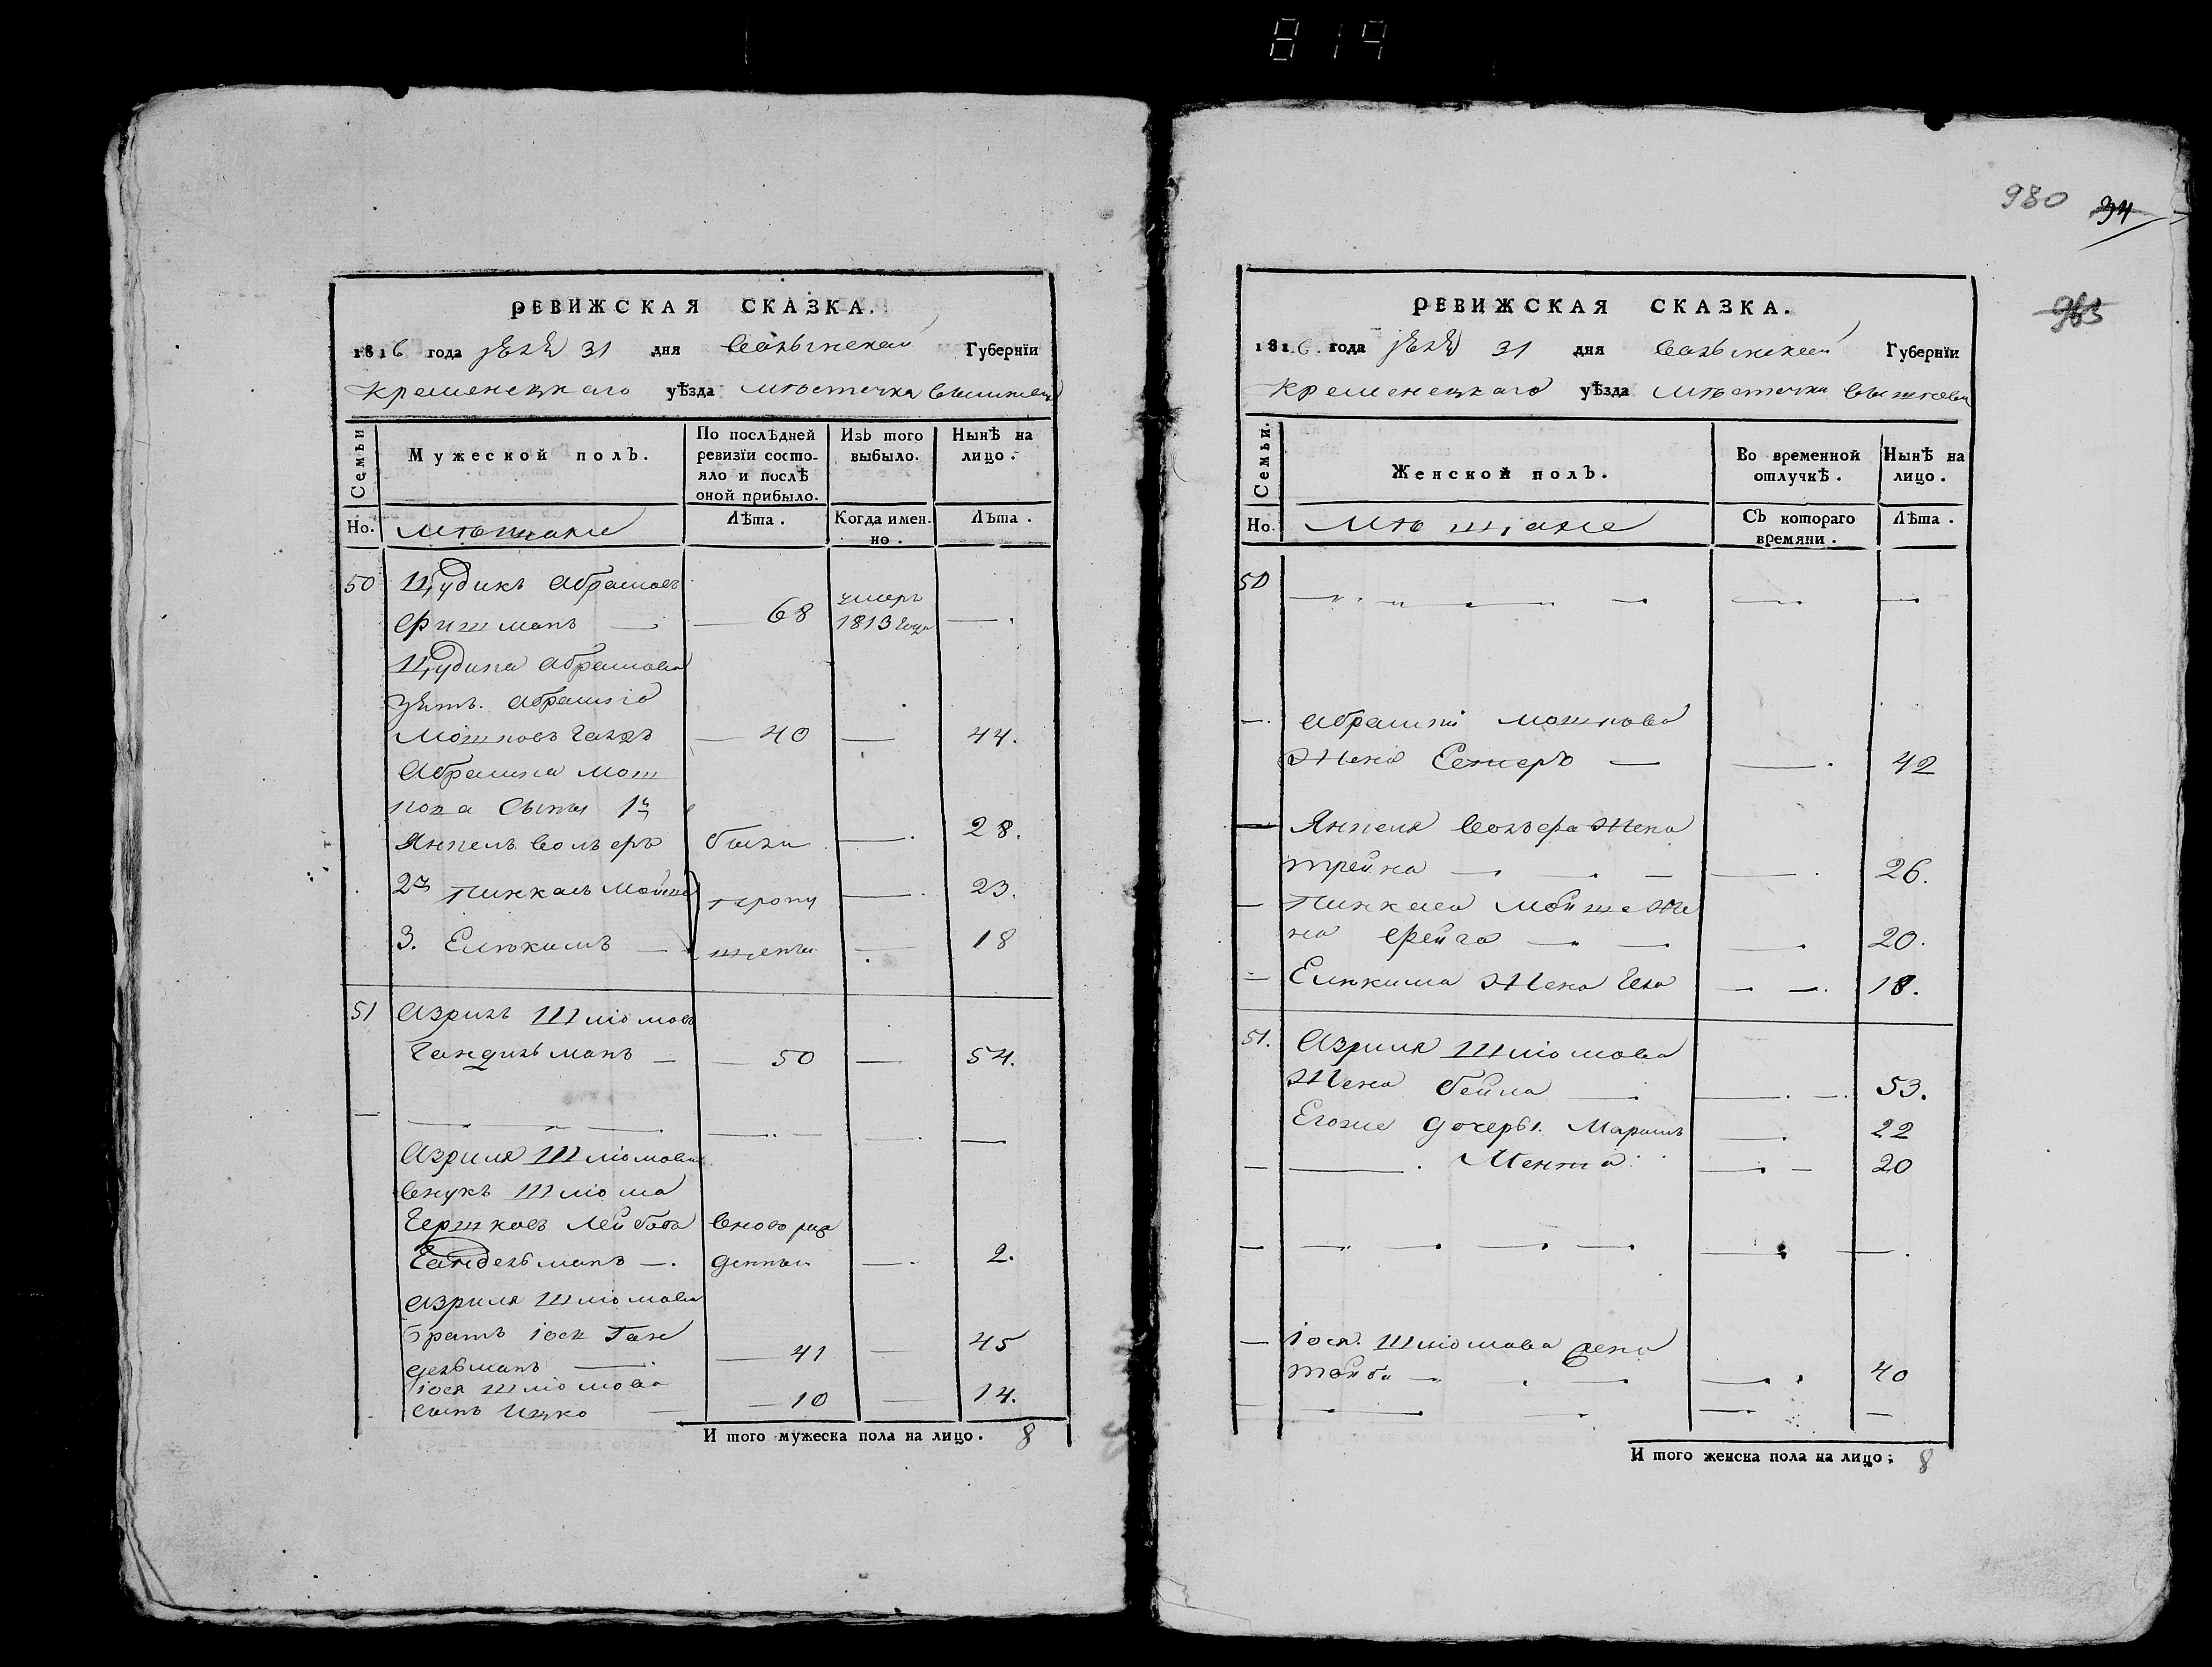 819
РЕВИЖСКАЯ СКАЗКА.
1816 года 31 дня Волынской Губернїи
Кременецкаго уѣзда мѣстечка Вишневца
Семьи
Мужеской полЪ.
По послѣдней ревизїи состояло и послѣ оной прибыло.
ИзЪ того выбыло.
НынѣЪ на лицо.
Но.
мѣщане
Лѣта.
Когда именно.
Лѣта.
50 Цудикъ Абрамовъ
Фишманъ — — 68 умеръ 1813 года —.
Цудика Абрамова
зять. Абрамко
Мошковъ — 40 — 44.
Абрамка Мош
ковa Сыны 1й
Янкель Вольфъ были —. 28.
2й Пинкасъ Мойше пропи —. 23.
3. Елюкимъ — щены — 18
51 Азриль Шліомовъ
Гандильманъ — — 50 — 54.
Азриля Шліомова
внукъ Шліома
Гершковъ Лейбовъ вново рож
Гандельманъ —. денный —. 2.
Азриля Шліомова
братъ Іось Ган
дельманъ — — 41 — 45
Іося Шліомова
сынъ Ицко — — 10 — 14.
И того мужеска пола на лицо. 8
980 34
983
РЕВИЖСКАЯ СКАЗКА.
1816. года 31 дня Волынской Губернїи
Кременецкаго уѣзда мѣстечка Вишневца
Семьи.
Женской полЪ.
Во временной отлучкѣ.
Нынѣ на лицо.
Но.
мѣщане
СЪ котораго времяни.
Лѣта.
50
—. Абрамка Мошкова
Жена Естеръ — —. 42
— Янкеля Вольфа Жена
Трейна — — — —. 26.
— Пинкаса Мойше Же
на Фейга — — — 20.
— Елюкима Жена — —. 18.
51. Азриля Шліомова
Жена Бейла — —. —. 53.
Егоже дочеры. Марьямъ —. 22
— —. Мента —. — 20
— Іося. Шліомова жена
Тойба — — —. 40
И того женска пола на лицо: 8